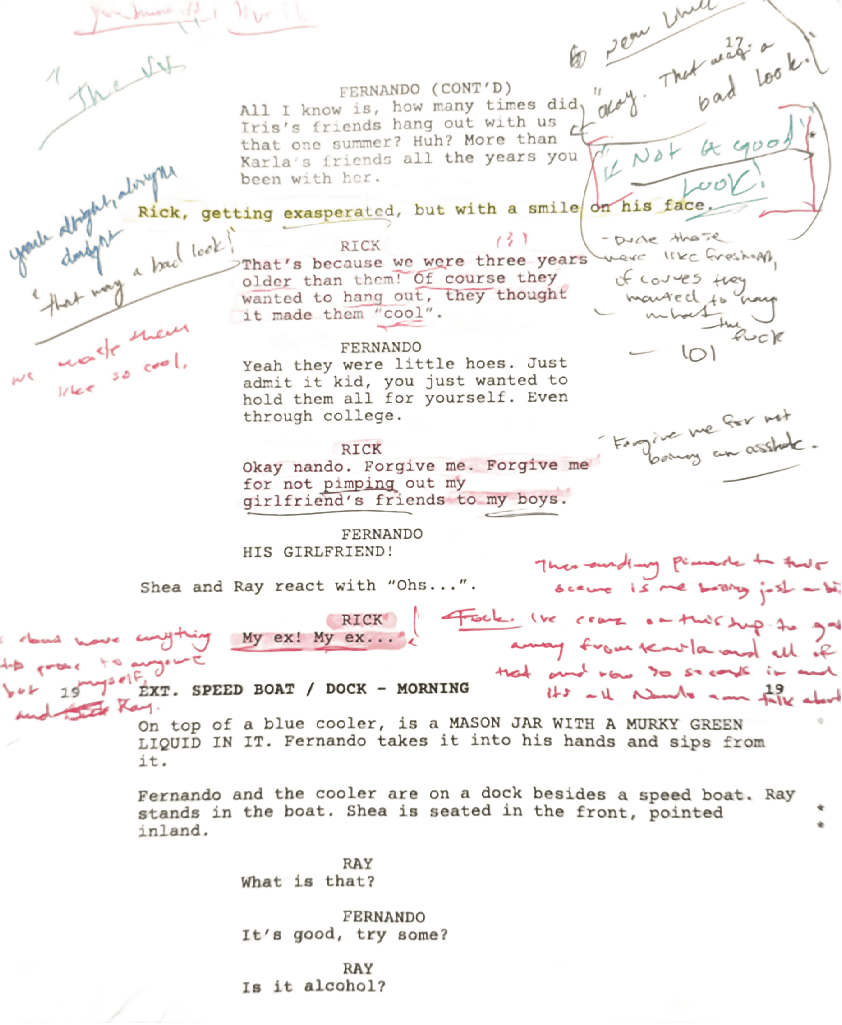 17.
"Okay. That was a
bad look."
"Not a good
LOOK!"
FERNANDO (CONT'D)
All I know is, how many times did
Iris's friends hang out with us
that one summer? Huh? More than
Karla's friends all the years you
been with her.
Rick, getting exasperated, but with a smile on his face.
"That was a bad look!"
RICK
That's because we were three years
older than them! Of course they
wanted to hang out, they thought
it made them "cool".
- Dude those
were like freshman,
of course they
wanted to hang
the
fuck
we made them
like so cool.
FERNANDO
Yeah they were little hoes. Just
admit it kid, you just wanted to
hold them all for yourself. Even
through college.
RICK
Okay nando. Forgive me. Forgive me
for not pimping out my
girlfriend's friends to my boys.
Forgive me for not
being an asshole.
FERNANDO
HIS GIRLFRIEND!
Shea and Ray react with "Ohs...".
RICK
My ex! My ex...
to this
scene is me being just a bit
Fuck. I've come on this trip to get
away from Karla and all of
that and now 30 seconds in and
it's all Nando can talk about
have anything
to prove to anyone
but myself,
and Ray.
19 EXT. SPEED BOAT / DOCK - MORNING 19
On top of a blue cooler, is a MASON JAR WITH A MURKY GREEN
LIQUID IN IT. Fernando takes it into his hands and sips from
it.
Fernando and the cooler are on a dock besides a speed boat. Ray
stands in the boat. Shea is seated in the front, pointed *
inland. *
RAY
What is that?
FERNANDO
It's good, try some?
RAY
Is it alcohol?